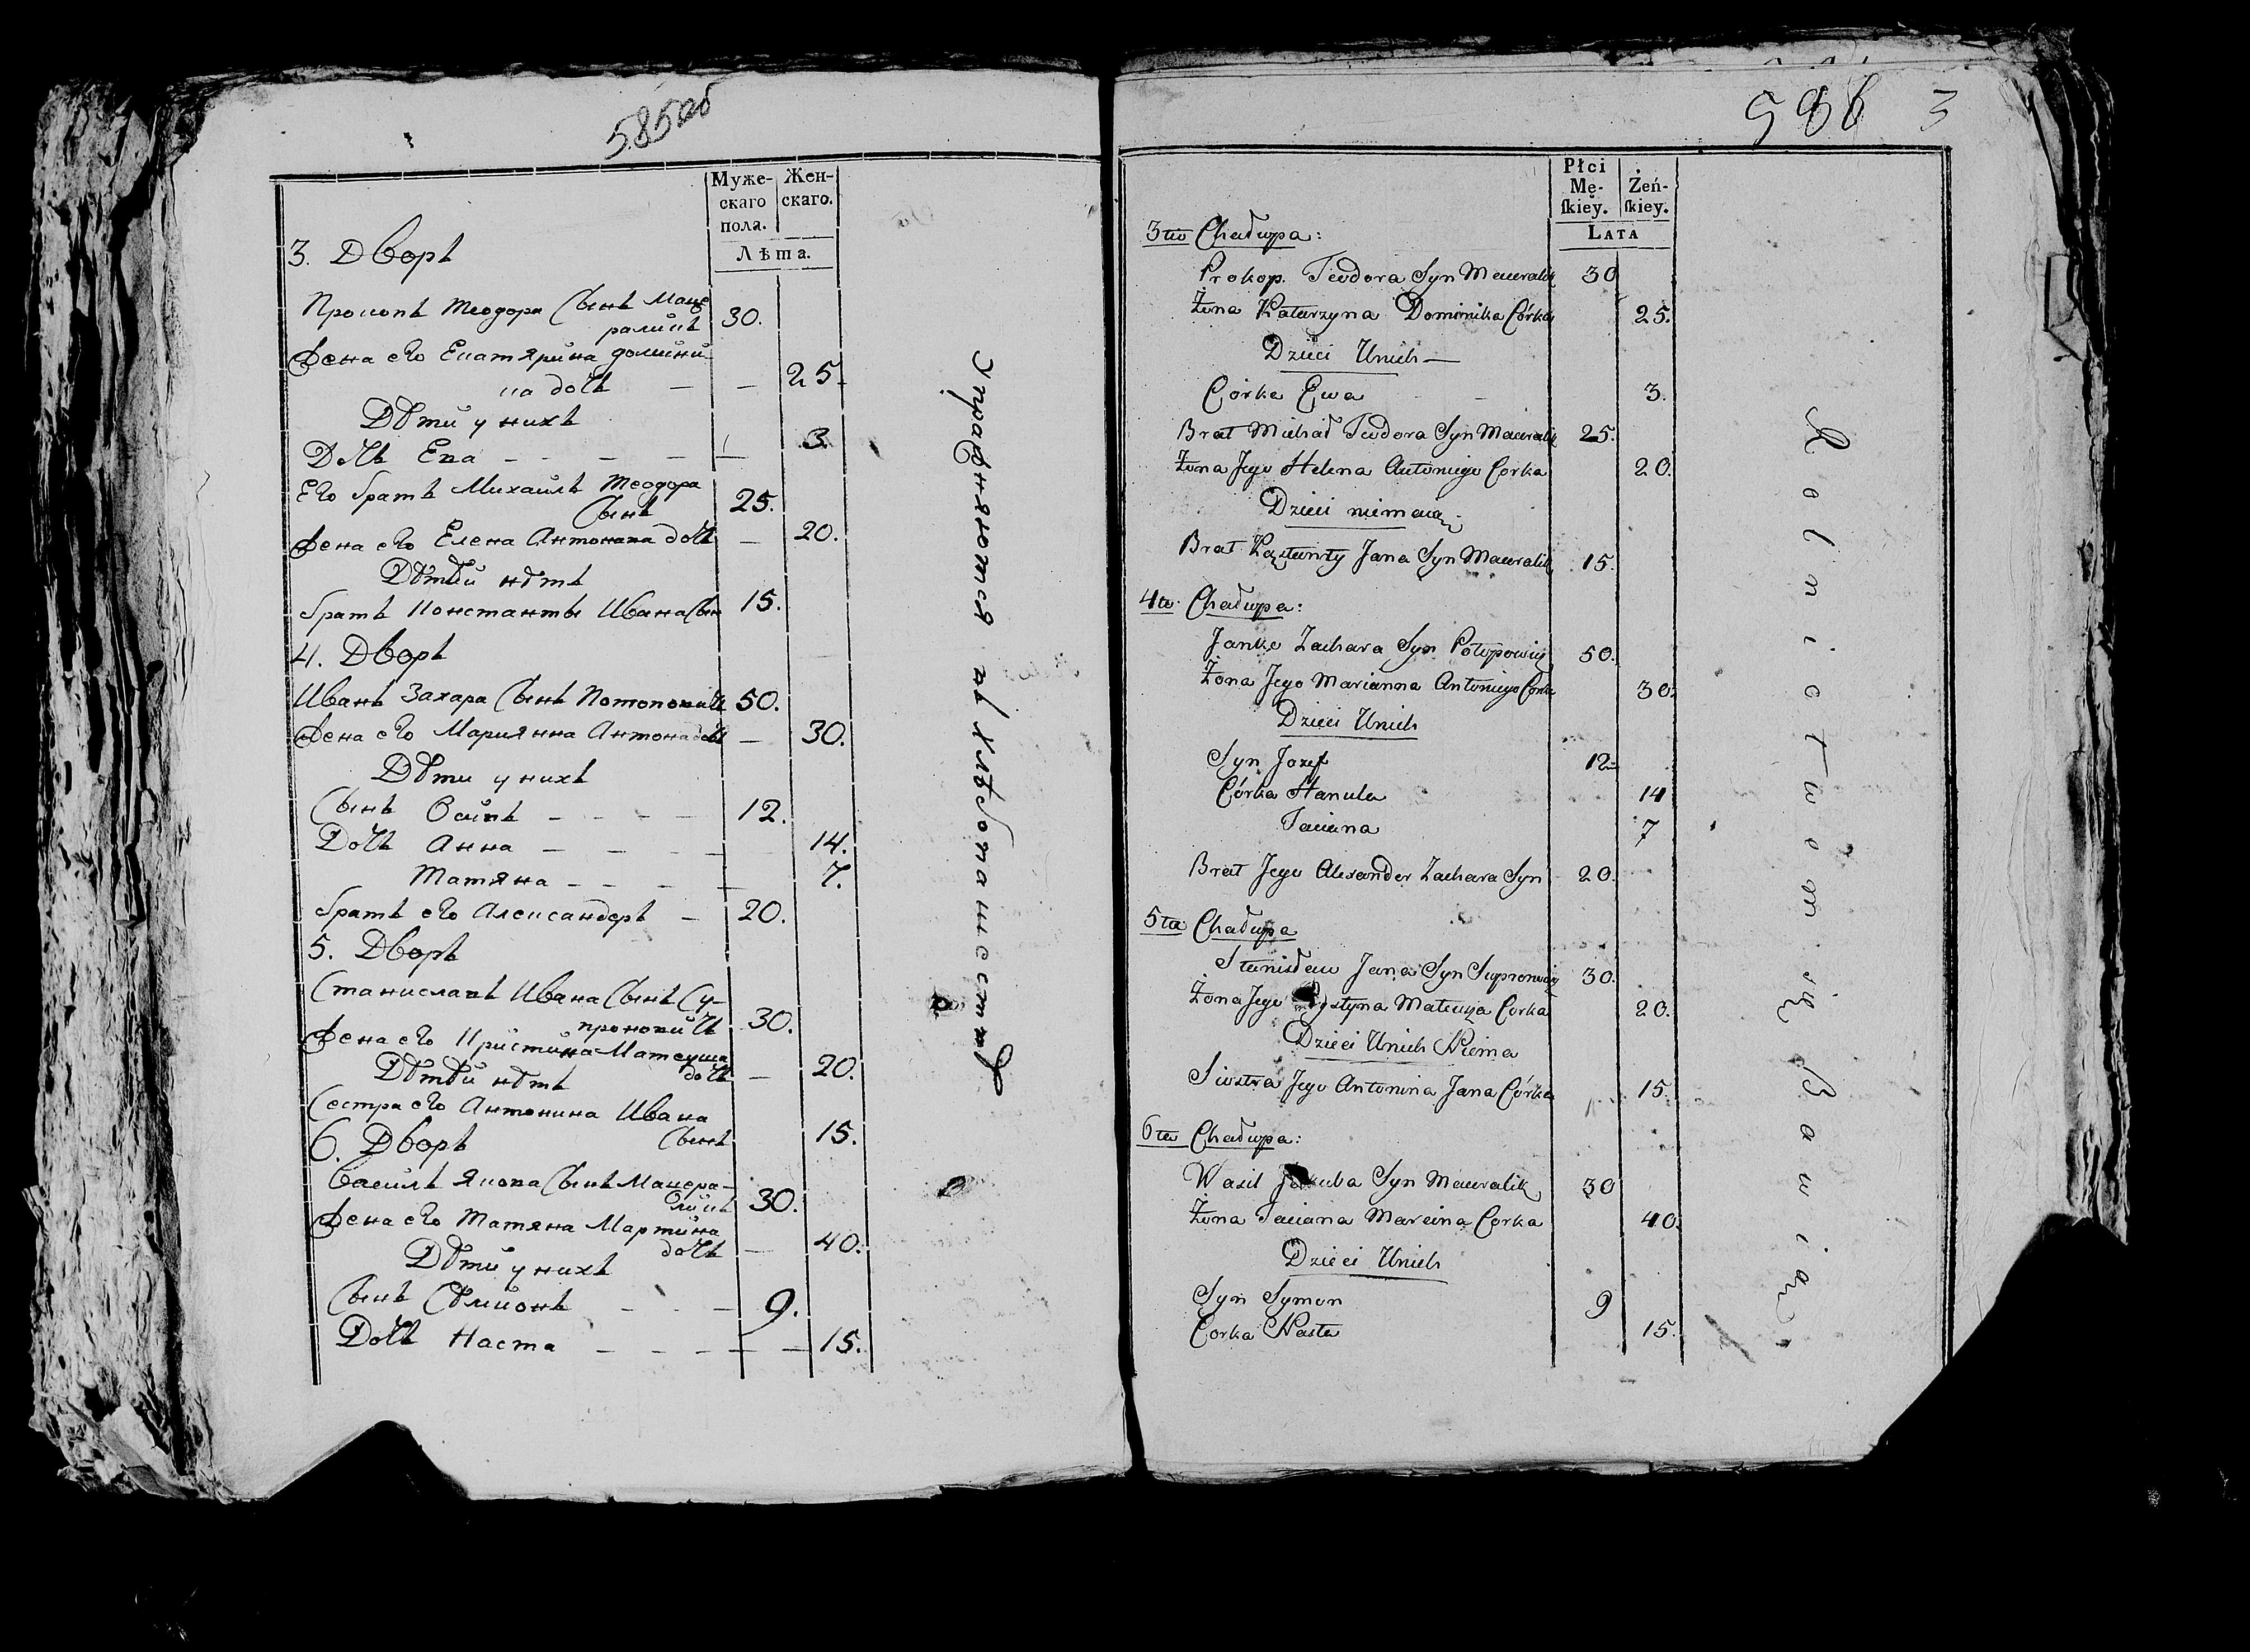 585об
Муже-
скаго
пола.
Жен-
скаго.
Лѣта.
3. Дворъ
Прокопъ Теодора Сынъ Маце
раликъ 30.
Жена его Екатярина Домини
ка дочь — — 25.
Дѣти у нихъ
Дочь Ева — — — — — 3
Его братъ Михаилъ Теодора
Сынъ 25.
Жена его Елена Антонава дочь — 20.
Дѣтѣй нѣтъ
братъ Константы Ивана Сын 15.
4. Дворъ
Иванъ Захара Сынъ Потоповичъ 50.
Жена его Мариянна Антона дочь — 30.
Дѣти у нихъ
Сынъ Осипъ — — — — 12.
Дочь Анна — — — — 14.
Татяна — — — — 7.
братъ его Александеръ — 20.
5. Дворъ
Станиславъ Ивана Сынъ Су-
проновичъ 30.
Жена его Кристина Матеуша
дочь — 20.
Дѣтѣй нѣтъ
Сестра его Антонина Ивана
Сынъ 15.
6. Дворъ
Василъ Якова Сынъ Мацера-
ликъ 30.
Жена его Татяна Мартина
дочь — 40.
Дѣти у нихъ
Сынъ Сѣмионъ — — — 9.
Дочь Наста — — — — — 15.
Упражняются въ хлѣбопашествѣ
586 3
Płci
Mę-
ſkiey.
Żeń-
ſkiey.
LATA
3cia Chałupa:
Prokop. Teodora Syn Maceralik 30
Żona Katarzyna Dominika Córka 25.
Dzieci Unich —
Córka Ewa 3.
Brat Michał Teodora Syn Maceralik 25.
Żona Jego Helena Antoniego Corka 20.
Dzieci niemaią
Brat Kąstanty Jana Syn Maceralik 15.
4ta Chałupa:
Janko Zachara Syn Potopowicz 50.
Żona Jego Marianna Antoniego Corka 30.
Dzieci Unich
Syn Jozef 12
Córka Hanula 14
Taciana 7
Brat Jego Alexander Zachara Syn 20.
5ta Chałupa
Stanisław Jana Syn Supronowicz 30.
Żona Jego Krystyna Mateusza Corka 20.
Dzieci Unich Niema
Siostra Jego Antonina Jana Córka 15.
6ta Chałupa:
Wasil Jakuba Syn Maceralik 30
Żona Taciana Marcina Corka 40.
Dzieci Unich
Syn Symon 9
Corka Nasta 15.
Rolnictwem się Bawią